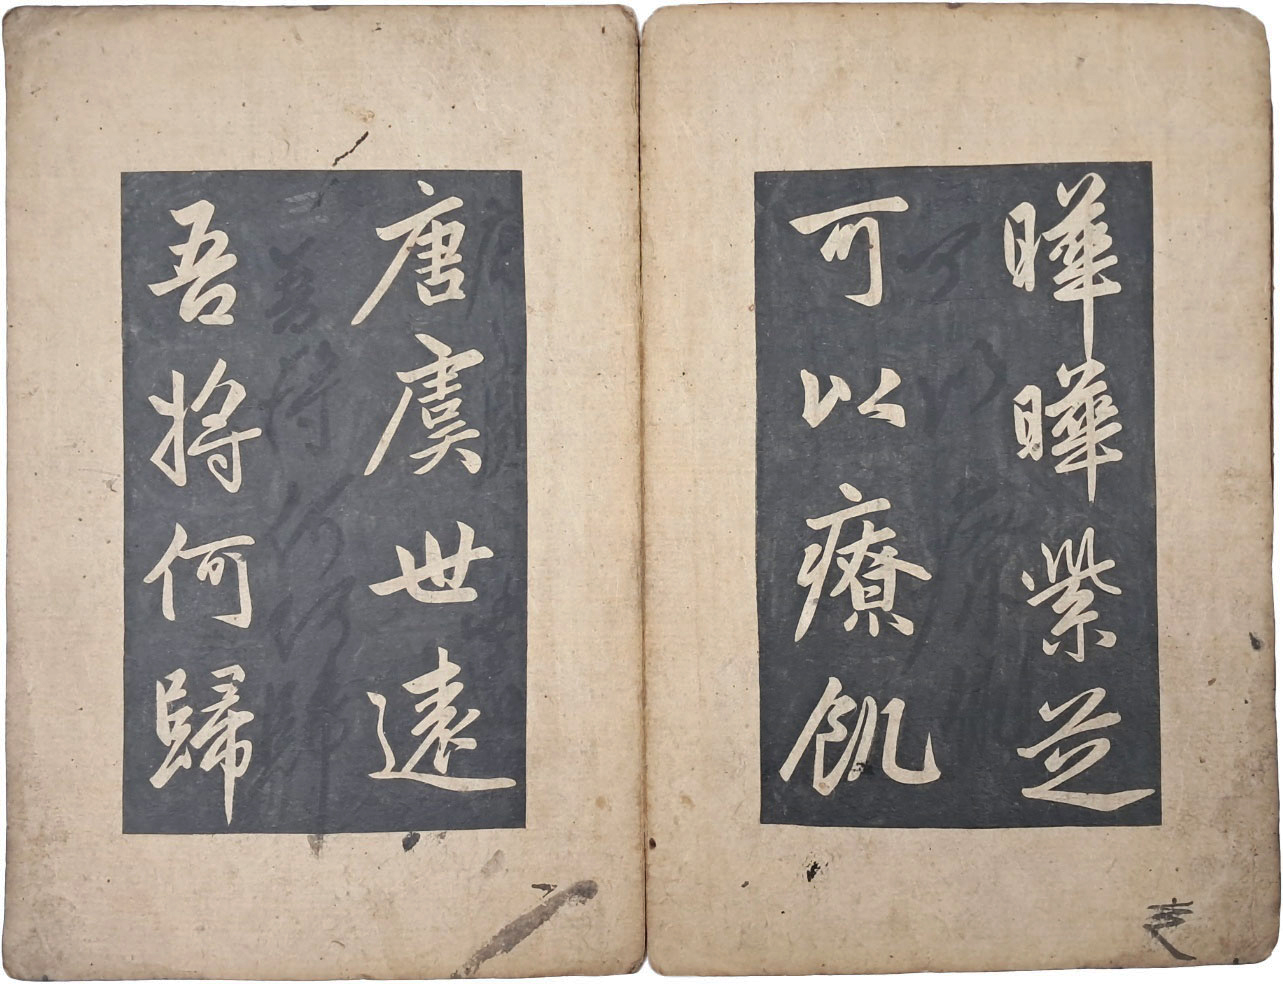 曄曄紫芝
可以療飢
唐虞世遠
吾將何歸